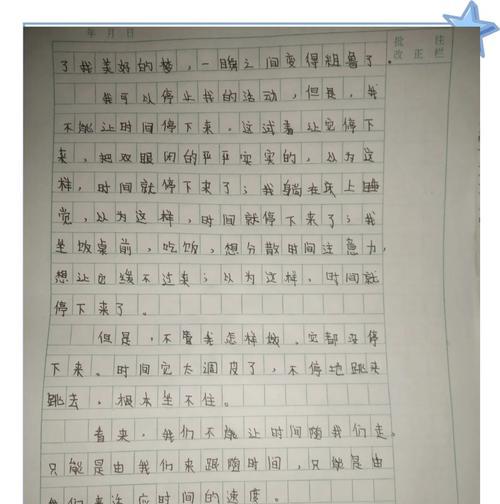 年 月 日
批 注
改 正 栏
了我美好的梦，一瞬之间变得粗鲁了。
我可以停止我的活动，但是，我
不能让时间停下来。这试着让它停下
来，把双眼闭的严严实实的，以为这
样，时间就停下来了；我躺在床上睡
觉，以为这样，时间就停下来了；我
坐饭桌前，吃饭，想分散时间注意力，
想让它缓不过来；以为这样，时间就
停下来了。
但是，不管我怎样做，它都没停
下来。时间它太调皮了，不停地跳来
跳去，根本坐不住。
看来，我们不能让时间随我们走。
只能是由我们来跟随时间，只能是由
我们来适应时间的速度。